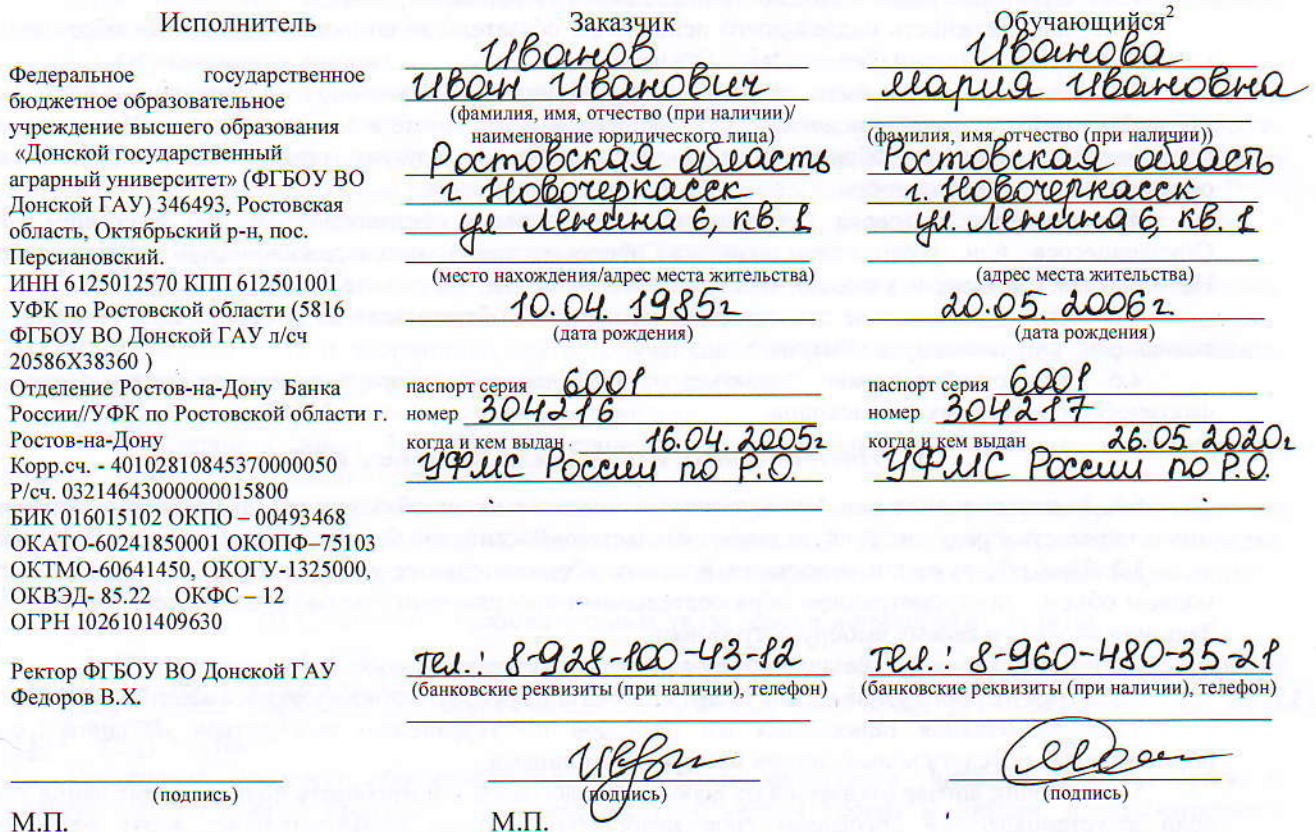 Исполнитель
Федеральное государственное
бюджетное образовательное
учреждение высшего образования
«Донской государственный
аграрный университет» (ФГБОУ ВО
Донской ГАУ) 346493, Ростовская
область, Октябрьский р-н, пос.
Персиановский.
ИНН 6125012570 КПП 612501001
УФК по Ростовской области (5816
ФГБОУ ВО Донской ГАУ л/сч
20586Х38360 )
Отделение Ростов-на-Дону Банка
России//УФК по Ростовской области г.
Ростов-на-Дону
Корр.сч. - 40102810845370000050
Р/сч. 03214643000000015800
БИК 016015102 ОКПО – 00493468
ОКАТО-60241850001 ОКОПФ–75103
ОКТМО-60641450, ОКОГУ-1325000,
ОКВЭД- 85.22 ОКФС – 12
ОГРН 1026101409630
Ректор ФГБОУ ВО Донской ГАУ
Федоров В.Х.
(подпись)
М.П.
Заказчик
Иванов
Иван Иванович
(фамилия, имя, отчество (при наличии)/
наименование юридического лица)
Ростовская область
г. Новочеркасск
ул. Ленина 6, кв. 1
(место нахождения/адрес места жительства)
10.04.1985г
(дата рождения)
паспорт серия 6001
номер 304216
когда и кем выдан 16.04.2005г
УФМС России по Р.О.
тел.: 8-928-100-43-12
(банковские реквизиты (при наличии), телефон)
(подпись)
М.П.
Обучающийся²
Иванова
Мария Ивановна
(фамилия, имя, отчество (при наличии))
Ростовская область
г. Новочеркасск
ул. Ленина 6, кв. 1
(адрес места жительства)
20.05.2006г
(дата рождения)
паспорт серия 6001
номер 304217
когда и кем выдан 26.05.2020г
УФМС России по Р.О.
тел.: 8-960-480-35-21
(банковские реквизиты (при наличии), телефон)
(подпись)